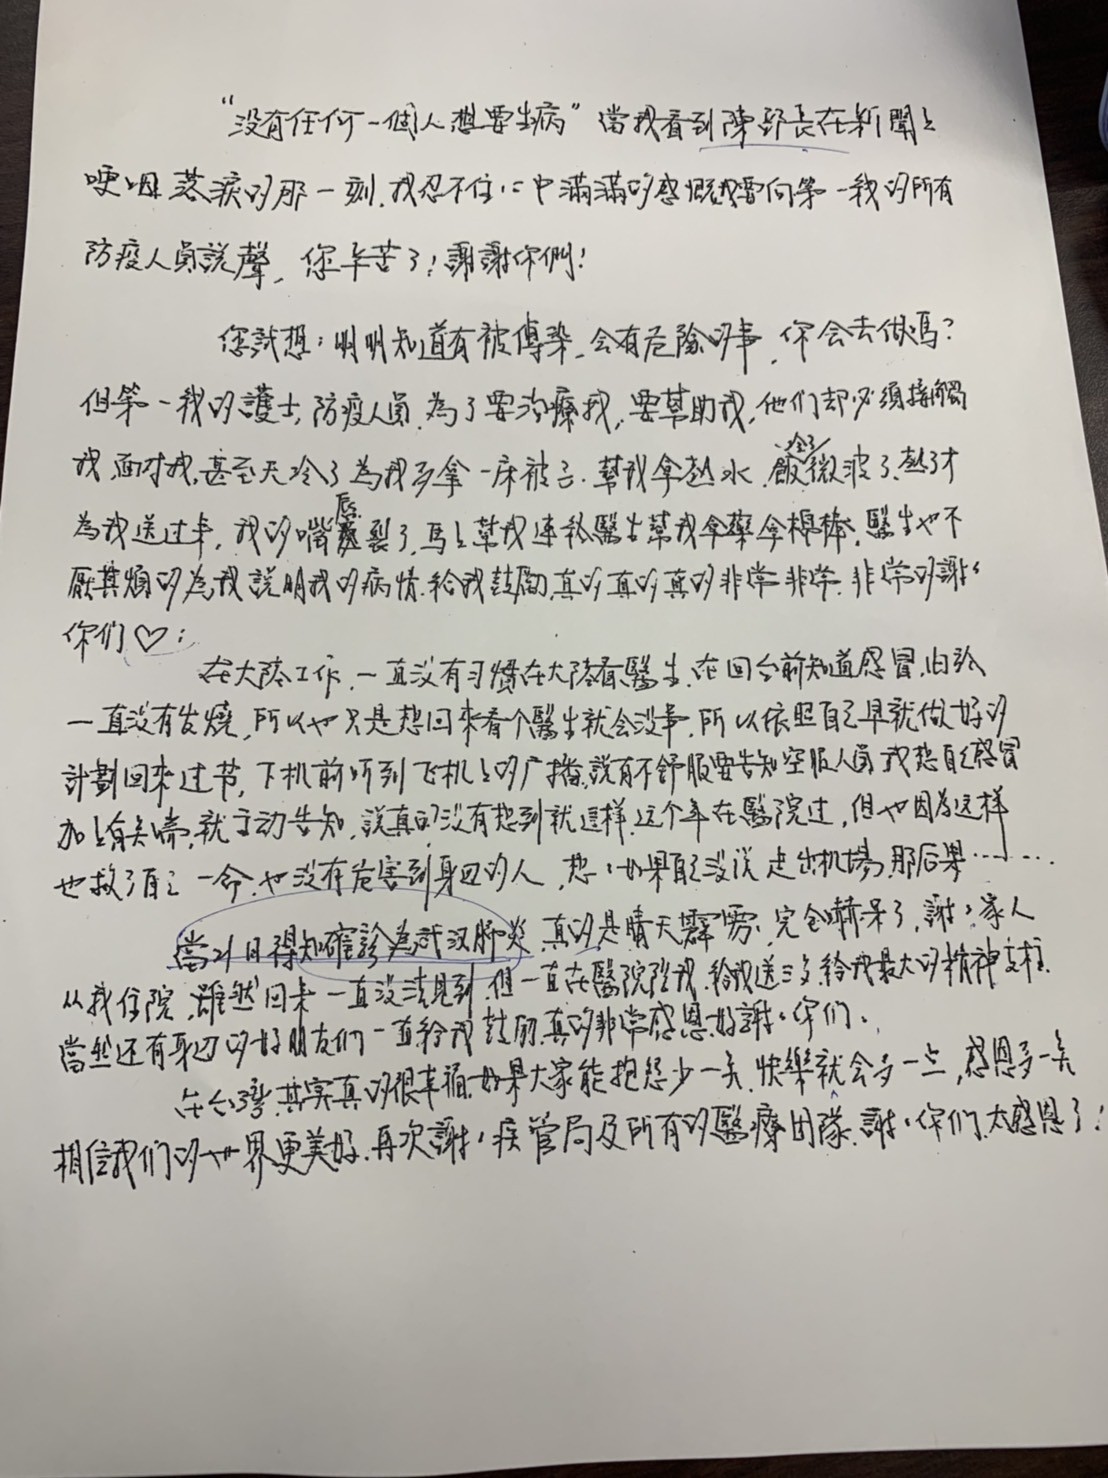 “没有任何一個人想要生病”當我看到陳部長在新聞上
哽咽落淚的那一刻,我忍不住心中滿滿的感慨我要向第一線的所有
防疫人員說聲,您辛苦了!謝謝你們!
您試想:明明知道有被傳染,会有危險的事,你会去做嗎?
但第一線的護士,防疫人員,為了要治療我,要幫助我,他们却必須接觸
我,面对我,甚至天冷了為我多拿一床被子,幫我拿熱水,飯冷了微波了,熱了才
為我送过来,我的嘴唇裂了,馬上幫我連絡醫生幫我拿藥拿棉棒,醫生也不
厭其煩的為我說明我的病情,給我鼓勵,真的真的真的非常非常非常的謝謝
你们♡!
在大陸工作,一直没有习慣在大陸看醫生,在回台前知道感冒,但就
一直没有发燒,所以也只是想回來看个醫生就会没事,所以依照自己早就做好的
計劃回來过节,下机前听到飞机上的广播,說有不舒服要告知空服人員,我想自己感冒
加上有気喘,就主动告知,說真的没有想到就這样,这个年在醫院过,但也因為这样
也救了自己一命,也没有危害到身边的人,想想如果自己没说走出机場,那后果…………
當21日得知確診為武汉肺炎,真的是晴天霹靂,完全嚇呆了,謝謝家人
从我住院,雖然回來一直没法見到,但一直在醫院陪我,給我送三多,給我最大的精神支柱.
當然还有身边的好朋友们一直給我鼓励,真的非常感恩,好謝謝你们.
在台灣,其实真的很幸福,如果大家能抱怨少一点,快樂就会多一点,感恩多一点
相信我们的世界更美好,再次謝謝疾管局及所有的醫療团隊,謝謝你们,太感恩了!